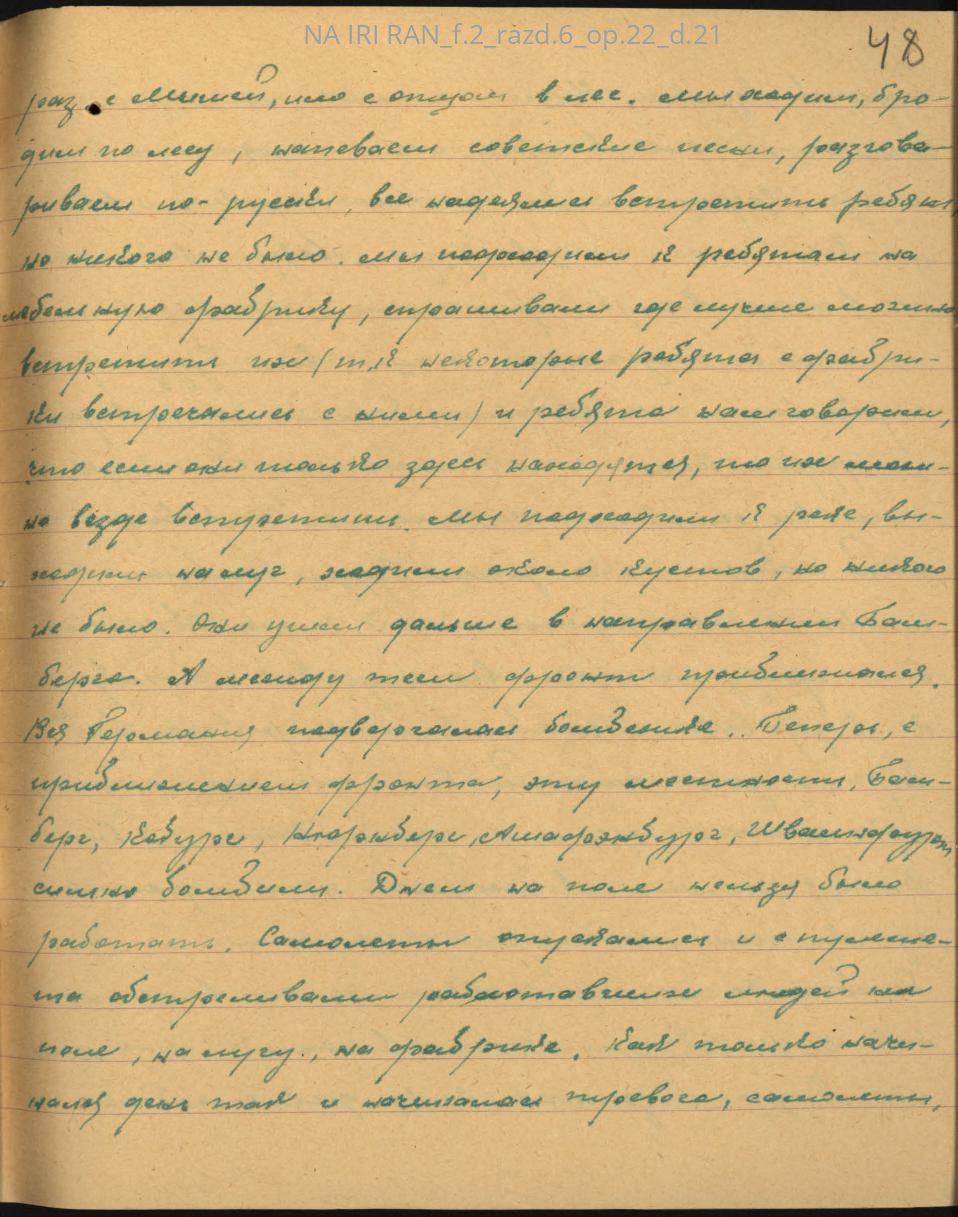 NA IRI RAN_f.2_razd.6_op.22_d.21
48
раз с Милей, или с отцом в лес. Мы ходим, бро-
дим по лесу, напеваем советские песни, разгова-
риваем по-русски, все надеялись встретить ребят,
но никого не было. Мы подходили к ребятам на
мебельную фабрику, спрашивали где лучше можно
встретить их (т.к некоторые ребята с фабри-
ки встречались с ними) и ребята нам говорили,
что если они только здесь находятся, то их мож-
но везде встретить. Мы подходили к реке, вы-
ходили на луг, ходили около кустов, но никого
не было. Они ушли дальше в направлении Бам-
берга. А между тем фронт приближался.
Вся Германия подвергалась бомбежке. Теперь, с
приближением фронта, эту местность, Бам-
берг, Кобург, Нюрнберг, Ашафенбург, Швайнфурт
сильно бомбили. Днем на поле нельзя было
работать. Самолеты опускались и с пулеме-
та обстреливали работавших людей на
поле, на лугу, на фабрике. Как только начи-
нался день так и начиналась тревога, самолеты,